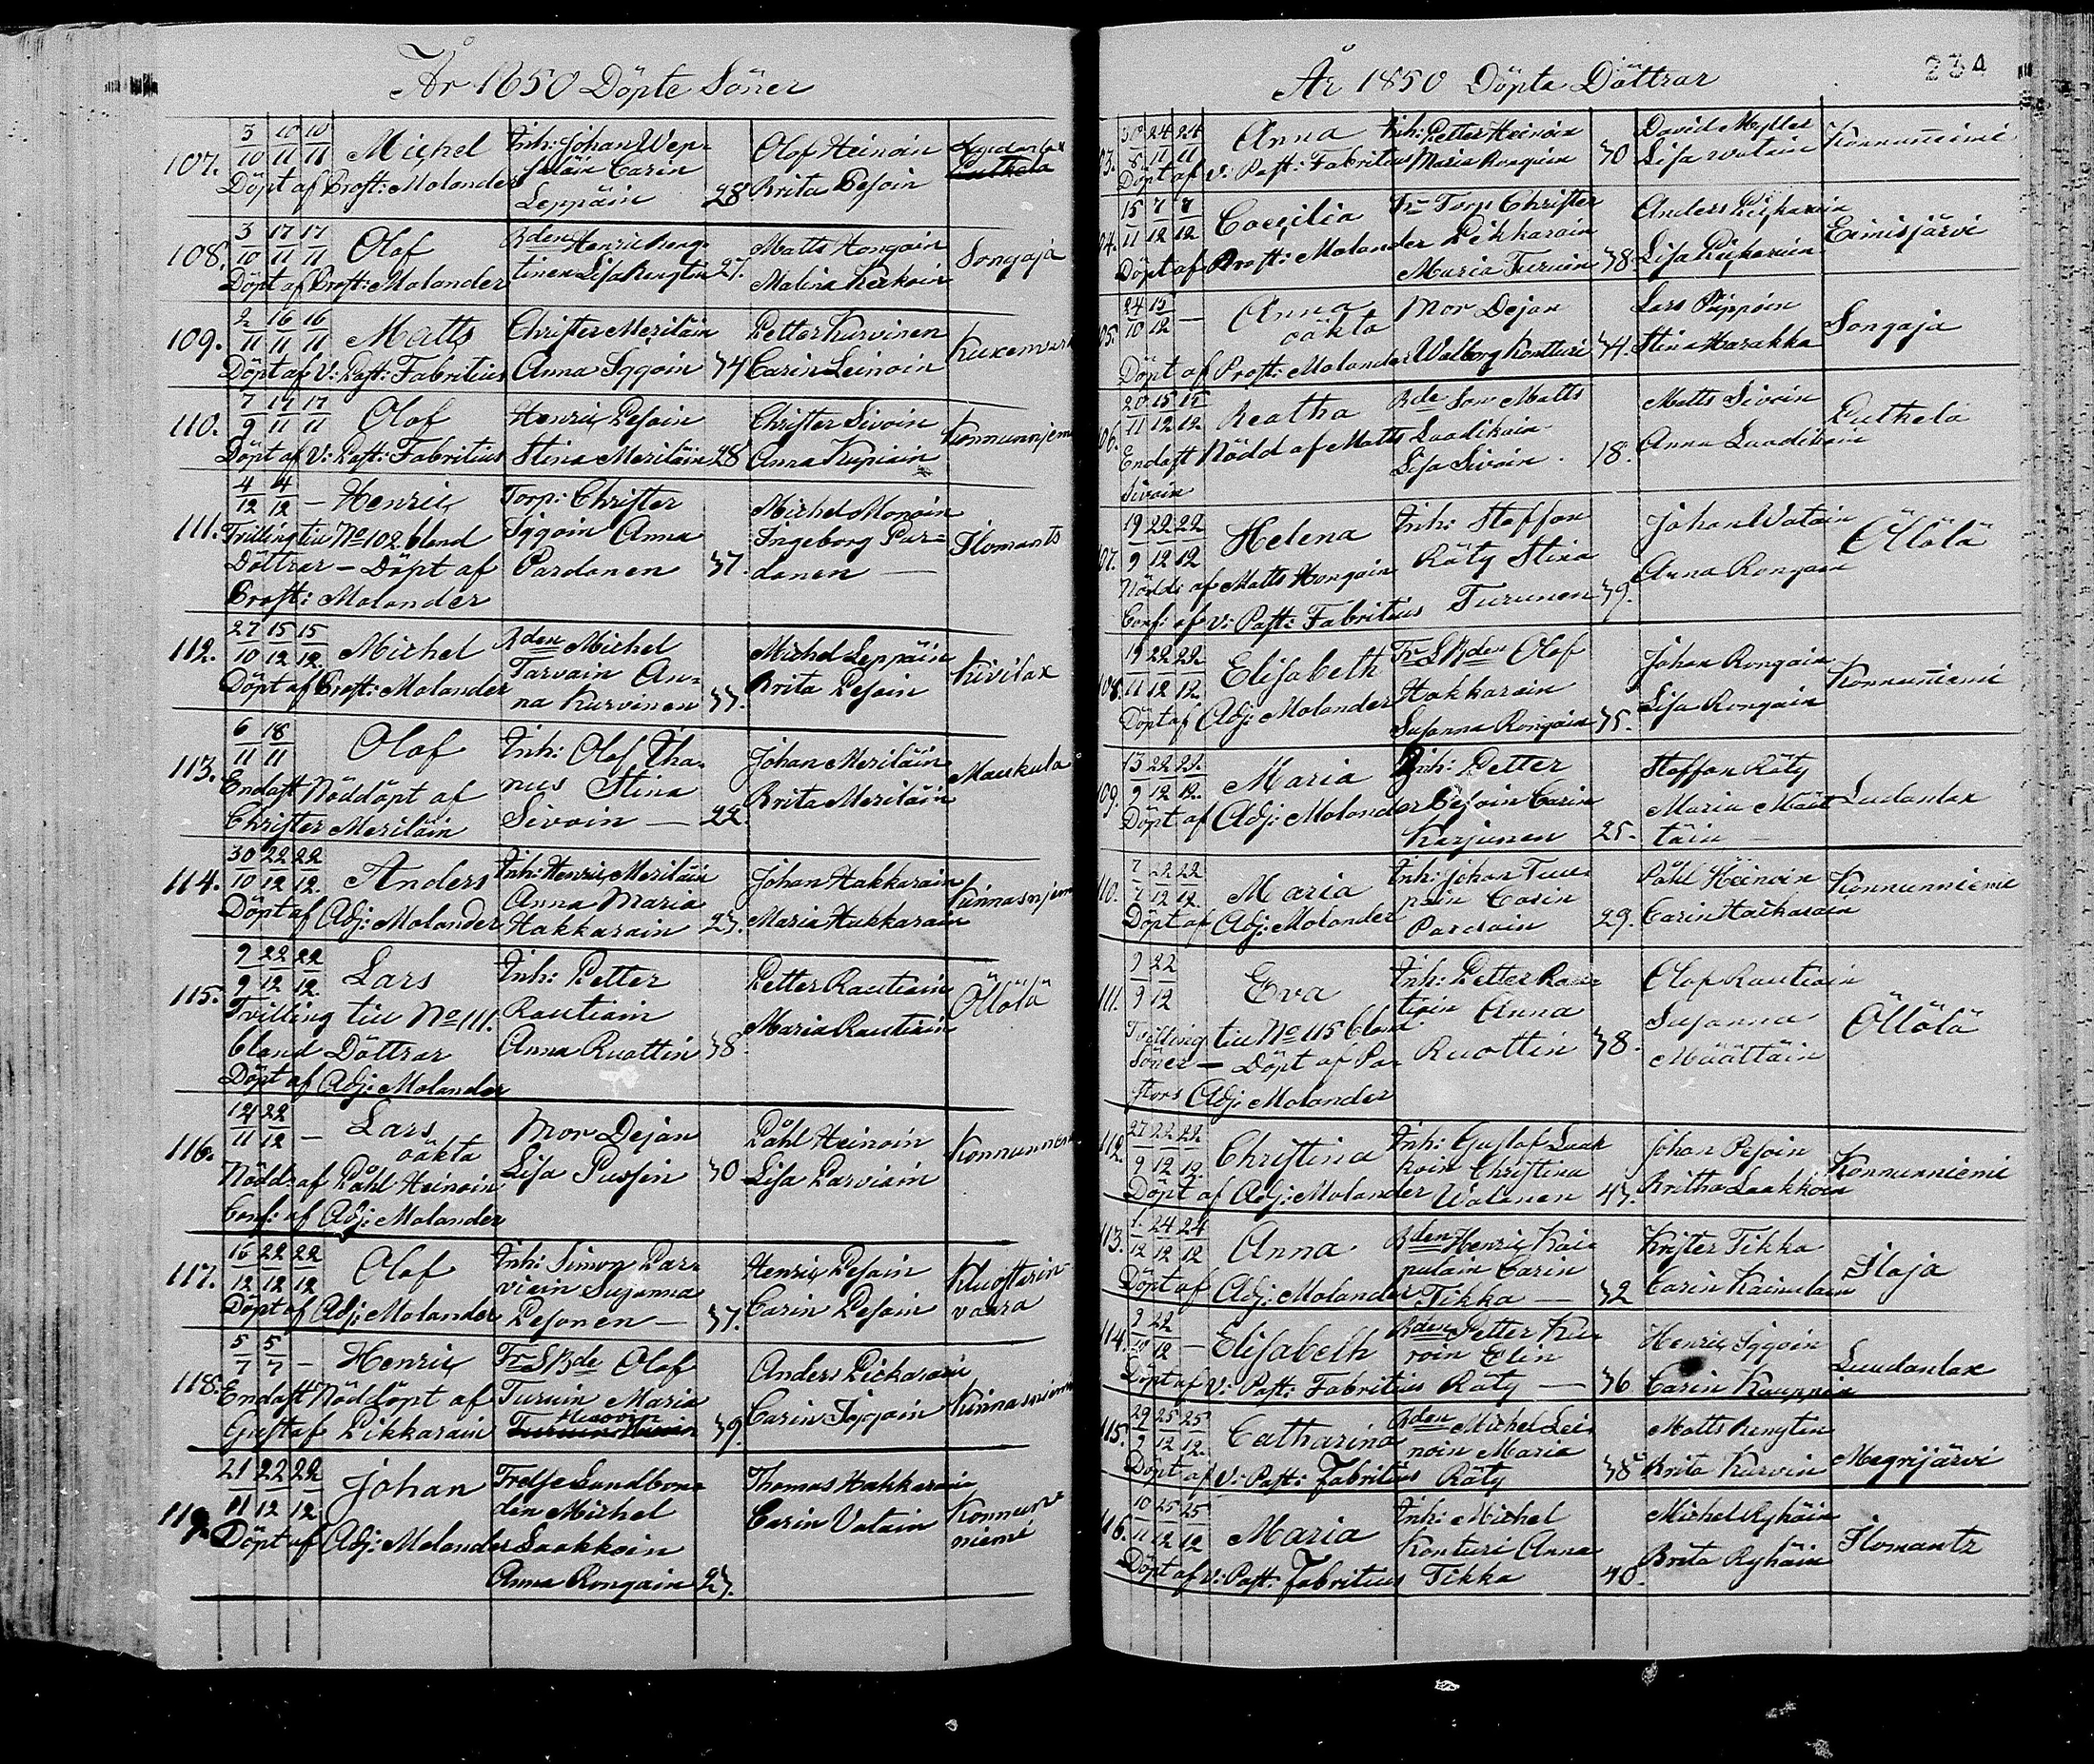 År 1850 Döpte Söner
107. 3/10 10/11 10/11 Michel Inh: Johan Wep-
säläin Carin
Leppäin 28 Olof Heinoin
Brita Pesoin Luudanlax
Döpt af Prost: Molander
108. 3/10 17/11 17/11 Olof Bden Henric Reng-
tinen Lisa Rengtin 27. Matts Hongoin
Malina Kerkoin Songaja
Döpt af Prost: Molander
109. 2/11 16/11 16/11 Matts Christer Meriläin
Anna Iggoin 34 Petter Kurvinen
Carin Leinoin
Döpt af V: Past: Fabritius
110. 7/9 17/11 17/11 Olof Henric Pesoin
Stina Meriläin 28 Christer Sivoin
Anna Kupiain Konnunnjemi
Döpt af V: Past: Fabritius
111. 4/12 4/12 – Henric Torp: Christer
Iggoin Anna
Pardanen 37. Michel Monoin
Ingeborg Par=
danen — Ilomants
Trilling till No 102 bland
Döttrar – Döpt af
Prost: Molander
112. 27/10 15/12 15/12 Michel Bden Michel
Tarvain An-
na Kurvinen 33. Michel Leppäin
Brita Pesoin Kivilax
Döpt af Prost: Molander
113. 6/11 18/11 Olof Inh: Olof Tha-
nus Stina
Sivoin — 22. Johan Meriläin
Brita Meriläin Maukula
Endast Nöddöpt af
Christer Meriläin
114. 30/10 22/12 22/12 Anders Inh: Henric Meriläin
Anna Maria
Hakkarain 23. Johan Hakkarain
Maria Hakkarain
Döpt af Adj: Molander
115. 9/9 22/12 22/12 Lars Inh: Petter
Rautiain
Anna Ruottin 38. Petter Rautiain
Maria Rautiain Öllölä
Tvilling till No 111.
bland Döttrar
Döpt af Adj: Molander
116. 14/11 22/12 – Lars
oäkta Mor Dejan
Lisa Pussin 30 Påhl Heinoin
Lisa Parviain
Nödd: af Påhl Heinoin
Conf: af Adj: Molander
117. 16/12 22/12 22/12 Olof Inh: Simon Par-
viain Susanna
Pesonen — 37. Henric Pesoin
Carin Pesoin Kluostarin
vaara
Döpt af Adj: Molander
118. 5/7 5/7 – Henric Fr S Bde Olof
Turuin Maria
39. Anders Pickarain
Carin Iggoin
Endast Nöddöpt af
Gustaf Pikkarain
119. 21/11 22/12 22/12 Johan Frelse Landbon-
den Michel
Laakkoin
Anna Rongain 23. Thomas Hakkarain
Carin Vatain Konnun-
niemi
Döpt af Adj: Molander
År 1850 Döpta Döttrar 234
103. 30/8 24/11 24/11 Anna Inh: Petter Heinoin
Maria Rongain 30 David Myller
Lisa Watain Konnunniemi
Döpt af V: Past: Fabritius
104. 15/11 7/12 7/12 Caecilia Fr Torp Christer
Pikkarain
Maria Turuin 38. Anders Pickarain
Lisa Pickarain Eimisjärvi
Döpt af Prost: Molander
105. 24/10 15/12 – Anna
oäkta Mor Dejan
Walborg Kontturi 34. Lars Piippoin
Stina Harakka Songaja
Döpt af Prost: Molander
106. 20/11 15/12 15/12 Beatha Bde Son Matts
Laadikain
Lisa Sivoin 18. Matts Sivoin
Anna Laadikain Luthela
Endast Nödd af Matts
Sivoin
107. 19/9 22/12 22/12 Helena Inh: Staffan
Räty Stina
Turunen 39. Johan Watain
Anna Rongain Öllölä
Nödd: af Matts Hongoin
Conf: af V: Past: Fabritius
108. 19/11 22/12 22/12 Elisabeth Fr S Bden Olof
Hakkarain
Susanna Rongain 35. Johan Rongain
Lisa Rongain Konnunniemi
Döpt af Adj: Molander
109. 13/9 22/12 22/12 Maria Inh: Petter
Pesoin Carin
Karjunen 25. Staffan Räty
Maria Määt
täin — Ludanlax
Döpt af Adj: Molander
110. 7/7 22/12 22/12 Maria Inh: Johan Tuu-
pain Carin
Pardain 29. Påhl Heinoin
Carin Hackarain Konnunniemi
Döpt af Adj: Molander
111. 9/9 22/12 Eva Inh: Petter Rau-
tiain Anna
Ruottin 38. Olof Rautiain
Susanna
Määttäin Öllölä
Tvilling till No 115 bland
Söner – Döpt af Pa-
stors Adj: Molander
112. 27/9 22/12 22/12 Christina Inh: Gustaf Laak
koin Christina
Watanen 43. Johan Pesoin
Britha Laakkoin Konnunniemi
Döpt af Adj: Molander
113. 1/12 24/12 24/12 Anna Bden Henric Kai-
pulain Carin
Tikka — 32 Krister Tikka
Carin Kainulain Ilaja
Döpt af Adj: Molander
114. 9/10 22/12 – Elisabeth Bden Petter Ku-
roin Elin
Räty — 36 Henric Iggoin
Carin Kauppin Luudanlax
Döpt af V: Past: Fabritius
115. 29/9 25/12 25/12 Catharina Bden Michel Lei-
noin Maria
Räty 38 Matts Rengtin
Brita Kurvin Megrijärvi
Döpt af V: Past: Fabritius
116. 10/11 25/12 25/12 Maria Inh: Michel
Konturi Anna
Tikka 40. Michel Ryhäin
Brita Ryhäin Ilomantz
Döpt af V: Past: Fabritius